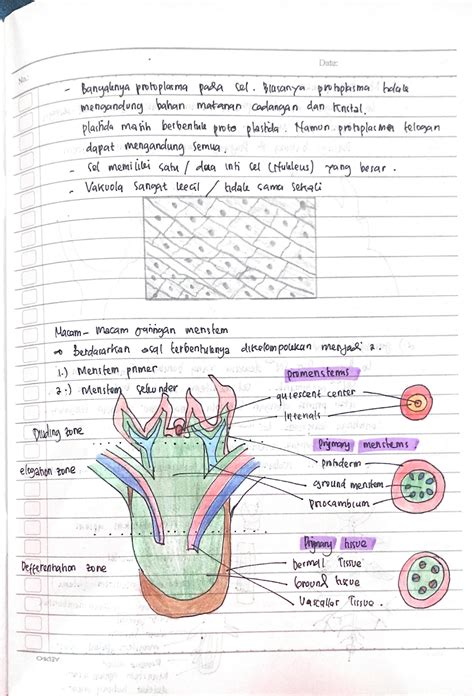 No:
Date:
- Banyaknya protoplasma pada sel. Biasanya protoplasma tidak
mengandung bahan makanan cadangan dan kristal.
plastida masih berbentuk proto plastida. Namun protoplasma felogen
dapat mengandung semua.
- Sel memiliki satu / dua inti sel (Nukleus) yang besar.
- Vakuola sangat kecil / tidak sama sekali
Macam-macam jaringan meristem
Berdasarkan asal terbentuknya dikelompokkan menjadi 2.
1.) Meristem primer
2.) Meristem sekunder
promeristems
quiescent center
Initials
Dividing zone
Primary meristems
protoderm
elogation zone
ground meristem
procambium
Primary tissue
Dermal Tissue
Differentiation zone
Ground tissue
Vascular Tissue.